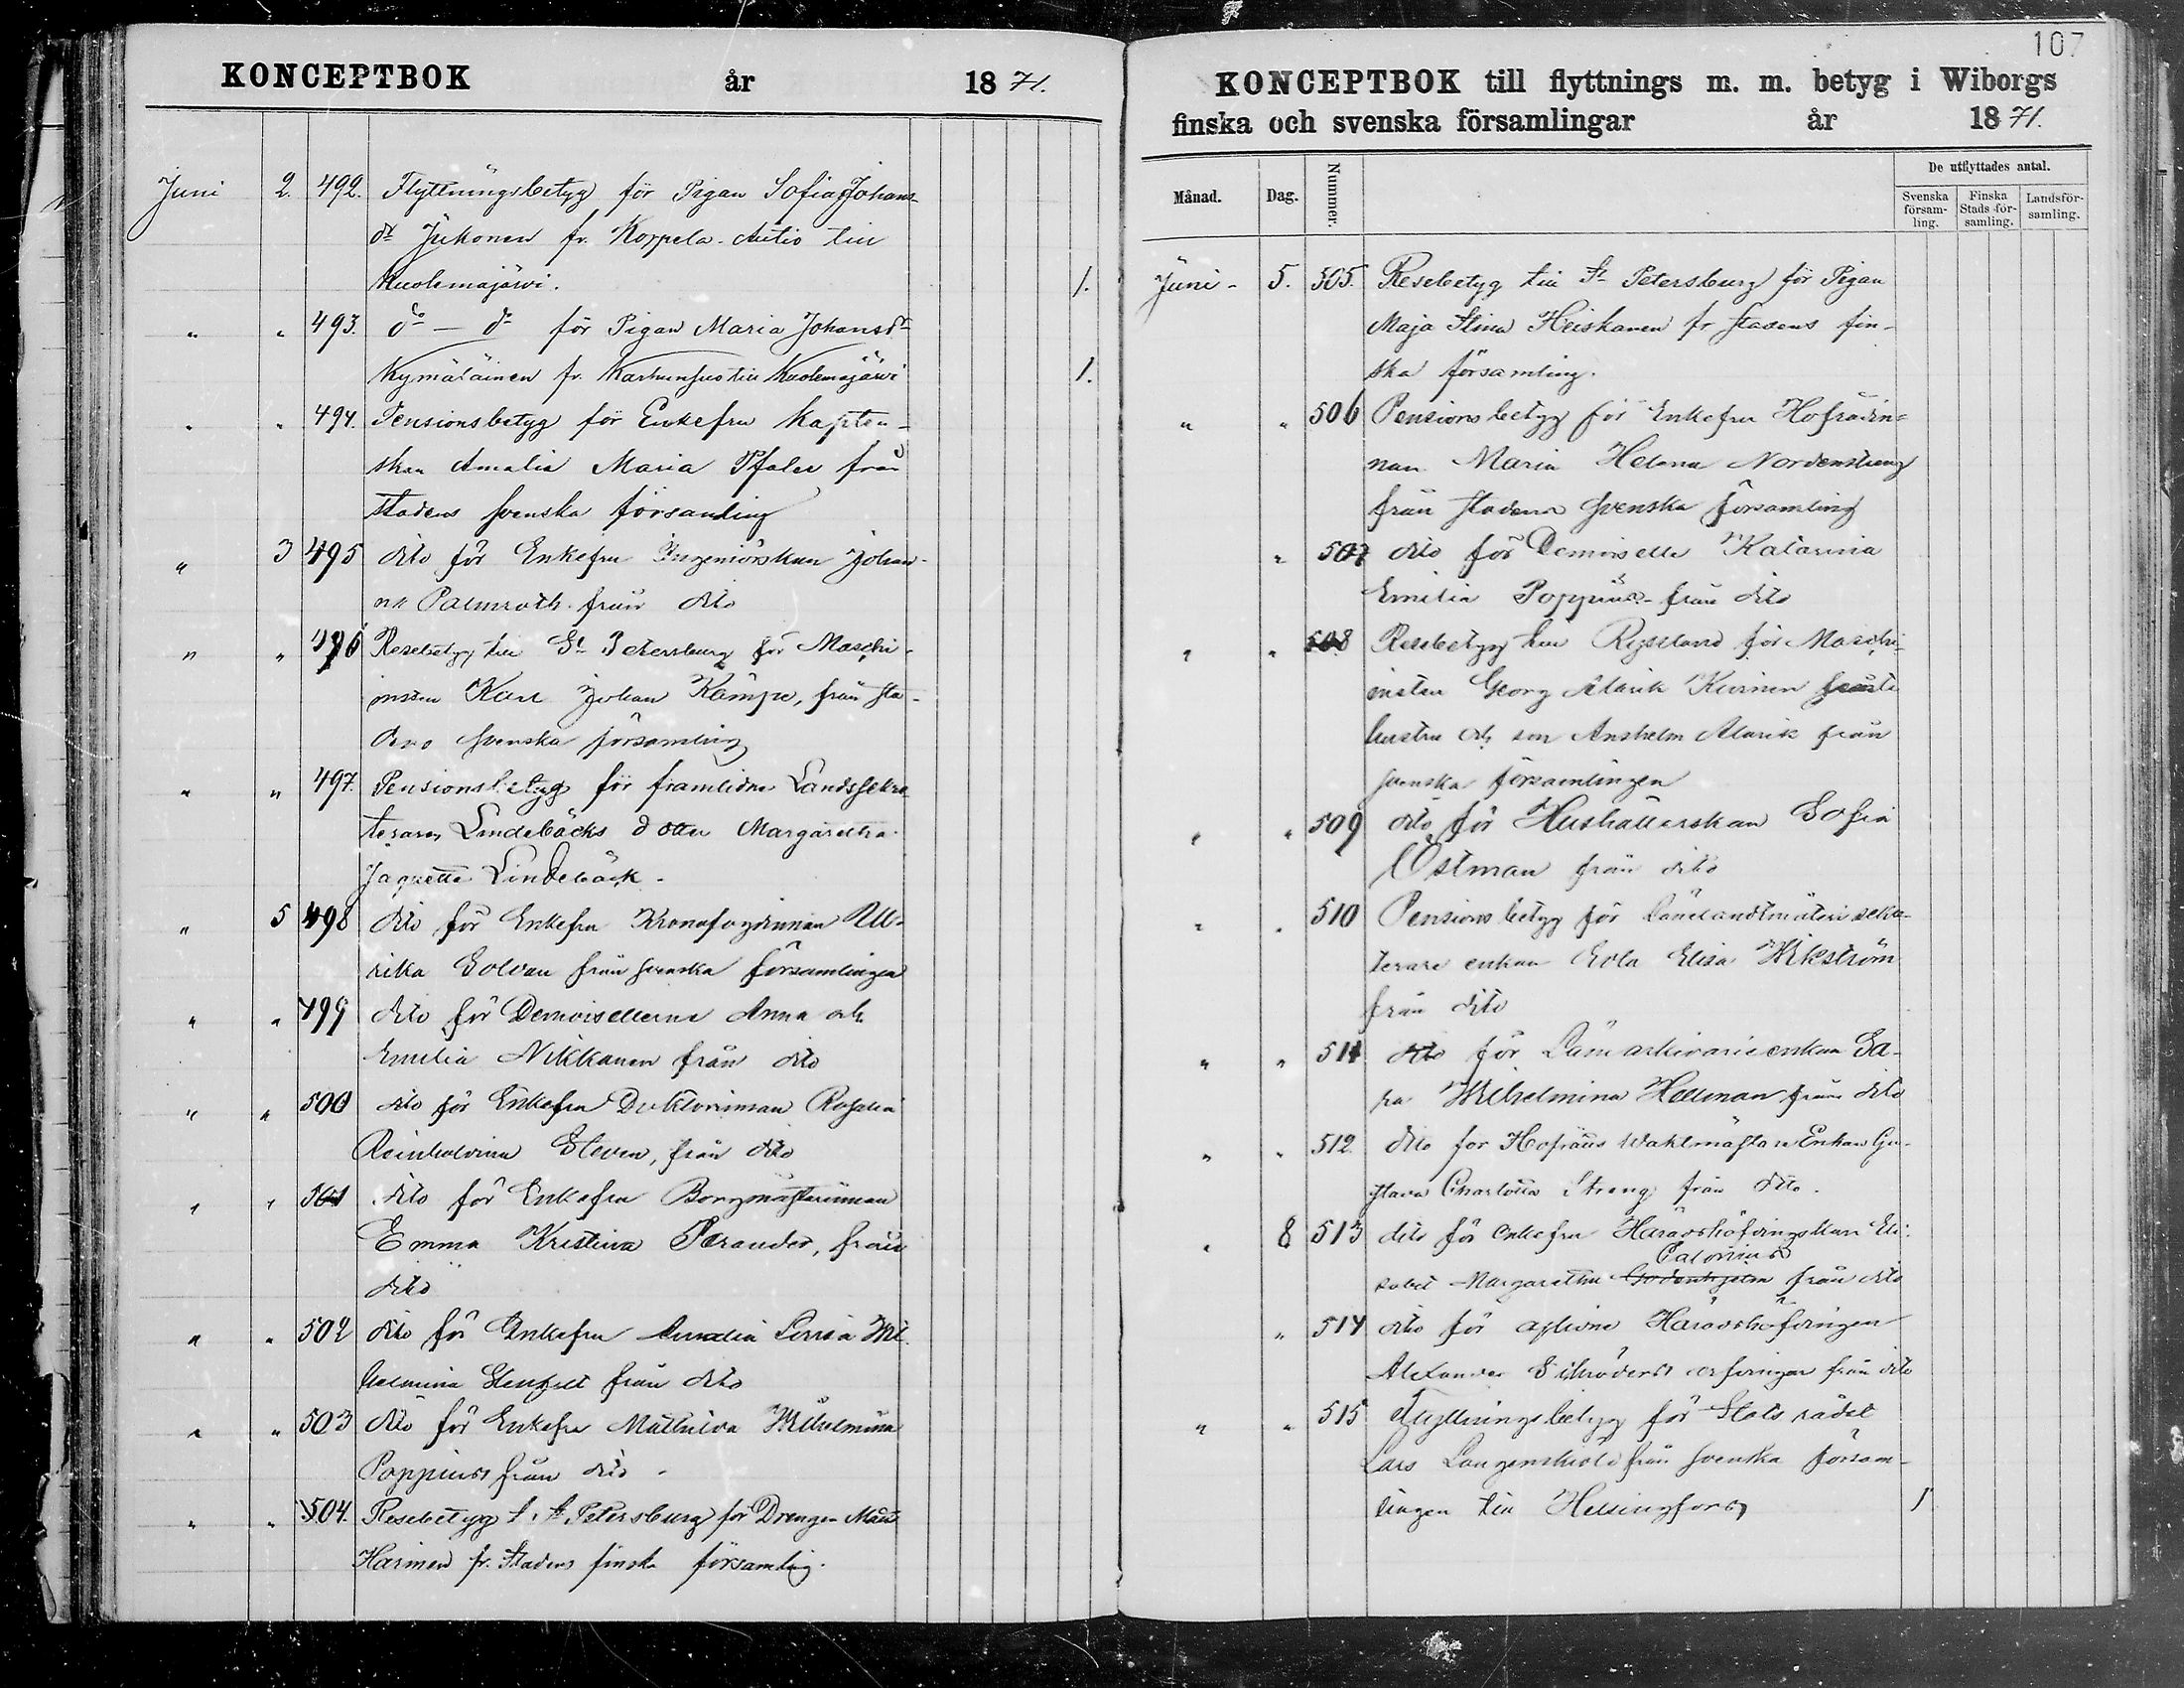 KONCEPTBOK år 1871.
Juni 2. 492. Flyttningsbetyg för Pigan Sofia Johans-
dr Jukonen fr. Koppela-Autio till
Kuolemajärvi. 1.
" " 493. do — do för Pigan Maria Johansdr
Kymäläinen fr. Karhunsuo till Kuolemajärvi 1.
" " 494. Pensionsbetyg för Enkefru Kapten-
skan Amalia Maria Pfaler från
stadens svenska församling
" 3 495 dito för Enkefru Ingeniörskan Johan-
na Palmroth från dito
" " 496 Resebetyg till St Petersburg för Maschi-
nisten Karl Johan Kämpe, från sta-
dens svenska församling
" " 497. Pensionsbetyg för framlidne Landssekre-
teraren Lindebäcks dotter Margaretha
Jaquette Lindebäck.
" 5 498 dito för Enkefru Kronofogdinnan Ul-
rika Solvan från svenska församlingen
" " 499 dito för Demoisellerne Anna och
Emilia Nikkanen från dito
" " 500 dito för Enkefru Doktorinnan Rosalia
Reinholdina Steven, från dito
" " 501 dito för Enkefru Borgmästarinnan
Emma Kristina Perander, från
dito
" " 502 dito för Enkefru Amalia Lovisa Wil-
helmina från dito
" " 503 dito för Enkefru Mathilda Wilhelmina
Poppius från dito.
" " 504. Resebetyg t. St Petersburg för Drengen Mats
Harinen fr. Stadens finska församling.
107
KONCEPTBOK till flyttnings m. m. betyg i Wiborgs
finska och svenska församlingar år 1871.
Månad. Dag. Nummer. De utflyttades antal.
Svenska församling. Finska Stads-församling. Landsförsamling.
Juni - 5. 505. Resebetyg till St Petersburg för Pigan
Maja Stina Heiskanen fr stadens fin-
ska församling.
" " 506 Pensionsbetyg för Enkefru Hofrådin-
nan Maria Helena Nordenstreng
från stadens svenska församling
" 507 dito för Demoiselle Katarina
Emilia Poppius från dito
" " 508 Resebetyg till Ryssland för Maschi-
nisten Georg Alarik Kivinen
hustru och son Anshelm Alarik från
svenska församlingen
" " 509 dito för Hushållerskan Sofia
Östman från dito
" " 510 Pensionsbetyg för Länelandtmäteri sekre-
terare enkan Eva Elisa Wikström
från dito
" " 511 dito för Länarkivarieenkan Sa-
ra Wilhelmina Hellman från dito
" " 512. dito för Hofrätts Waktmästare Enkan Gu-
stava Charlotta Streng från dito.
" 8 513 dito för enkefru Häradshöfdingskan Eli-
Calonius
sabet Margaretha från dito
" 514 dito för aflidne Häradshöfdingen
Alexander Schröders arfvingar från dito
" " 515 Flyttningsbetyg för Statsrådet
Lars Langenskiöld från svenska försam-
lingen till Helsingfors 1